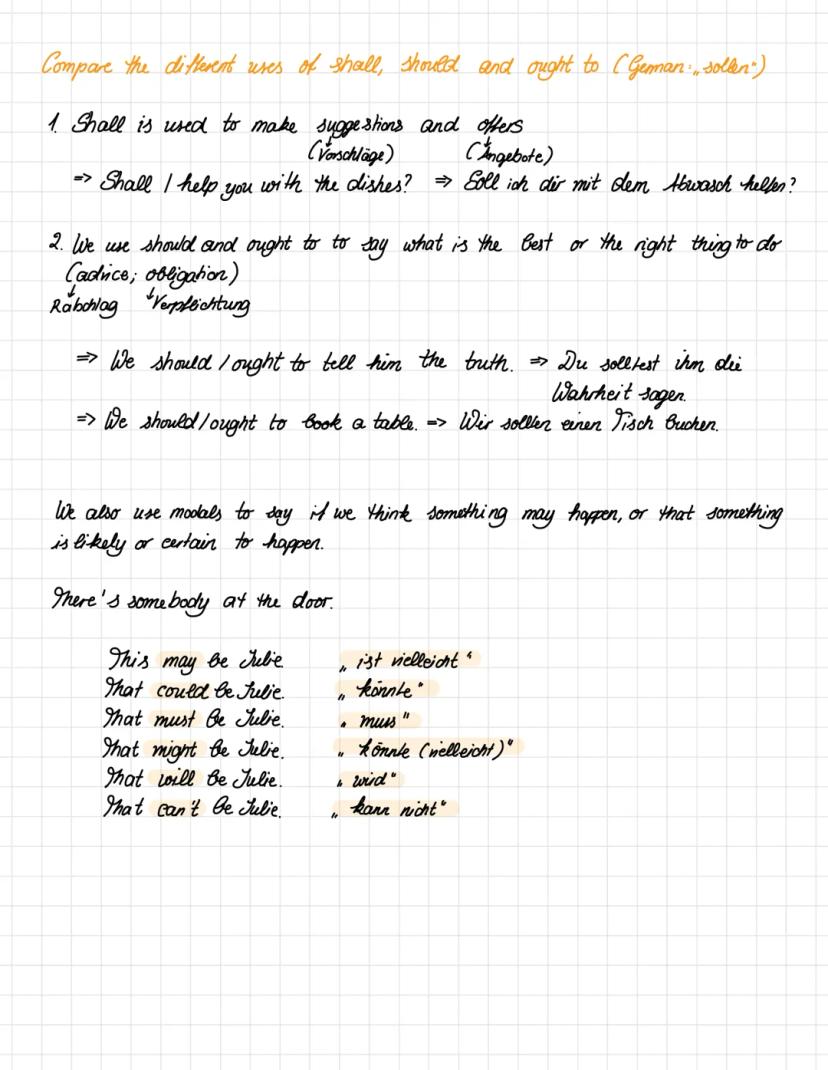 Compare the different uses of shall, should and ought to (German: „sollen“)
1. Shall is used to make suggestions and offers
(Vorschläge) (Angebote)
=> Shall I help you with the dishes? => Soll ich dir mit dem Abwasch helfen?
2. We use should and ought to to say what is the best or the right thing to do
(advice; obligation)
Ratschlag Verpflichtung
=> We should / ought to tell him the truth. => Du solltest ihm die
Wahrheit sagen.
=> We should/ought to book a table. => Wir sollten einen Tisch buchen.
We also use modals to say if we think something may happen, or that something
is likely or certain to happen.
There's somebody at the door.
This may be Julie „ist vielleicht“
That could be Julie. „könnte“
That must be Julie. „muss“
That might be Julie. „könnte (vielleicht)“
That will be Julie. „wird“
That can't be Julie. „kann nicht“